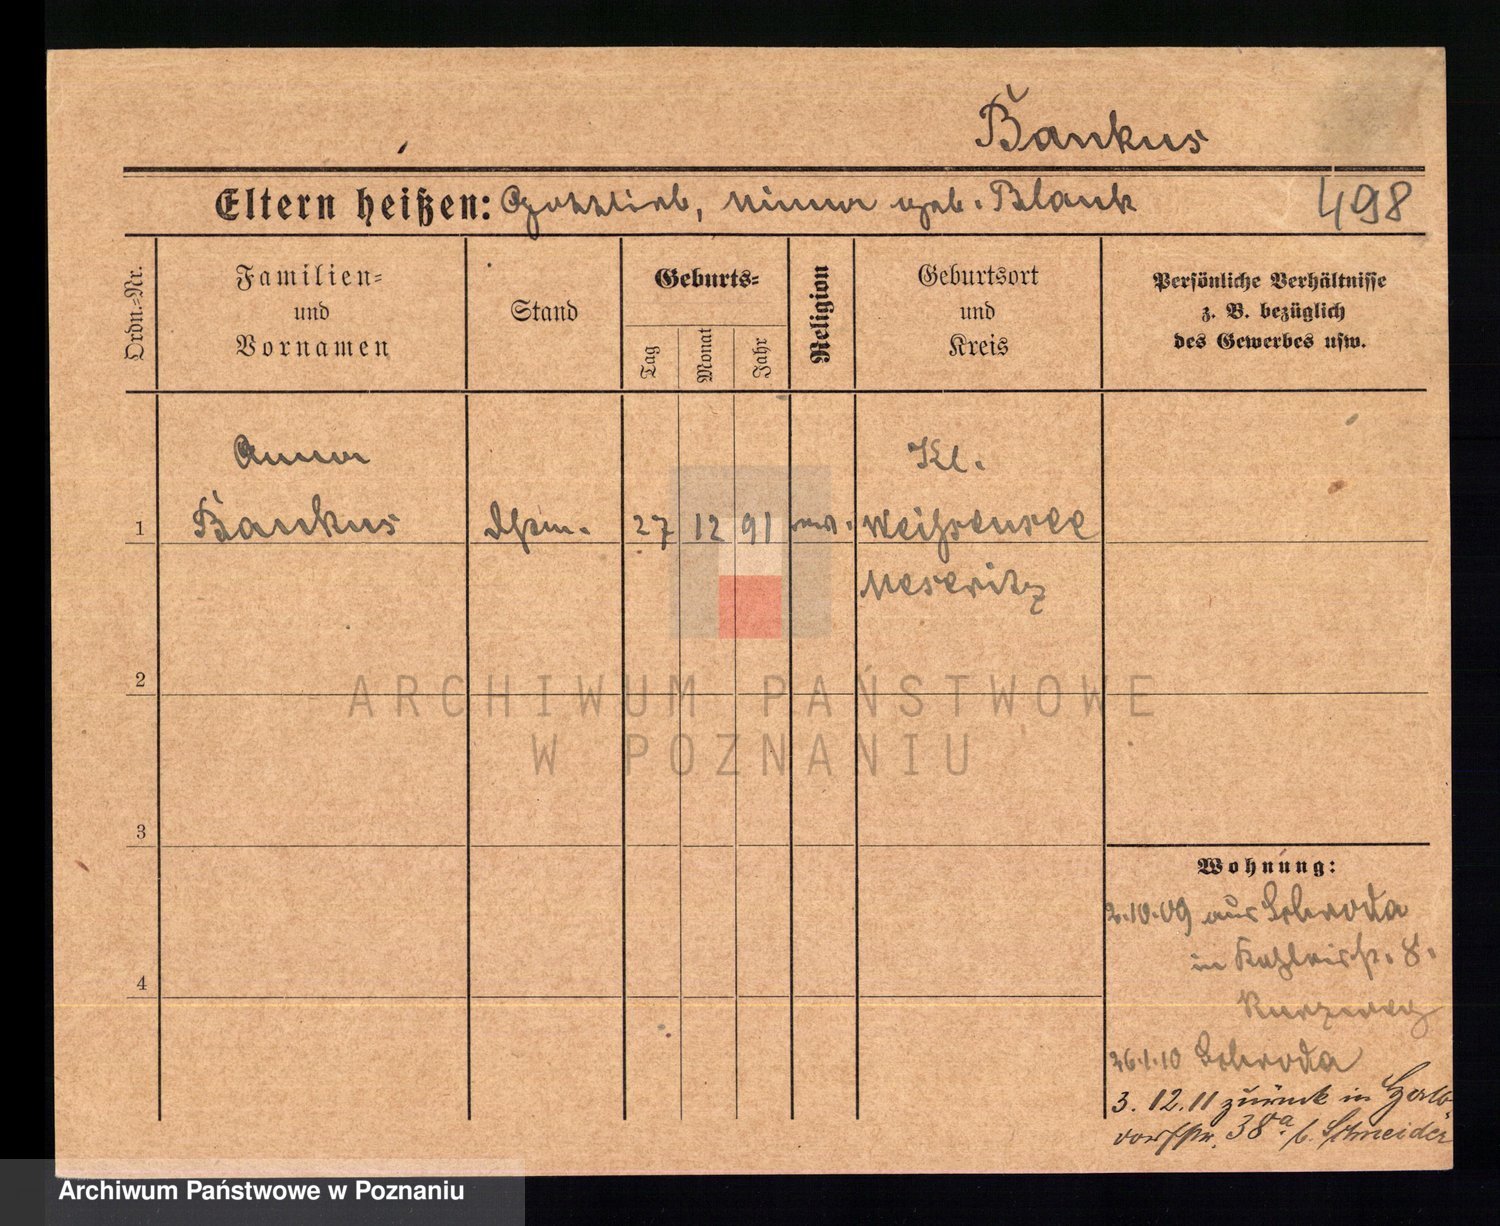 Bankus
Eltern heißen: Gottlieb, Minna geb. Blank
498
Ordn.=Nr.
Familien=
und
Vornamen
Stand
Geburts=
Tag
Monat
Jahr
Religion
Geburtsort
und
Kreis
Persönliche Verhältnisse
z. B. bezüglich
des Gewerbes usw.
Anna
Bankus
1
27 12 91
Kl.
Weißensee
Meseritz
2
3
4
Wohnung:
2.10.09 aus Schroda
in 8.
26.1.10 Schroda
3. 12. 11 zurück in
dorfstr. 38a b. Schneider
ARCHIWUM PAŃSTWOWE
W POZNANIU
Archiwum Państwowe w Poznaniu